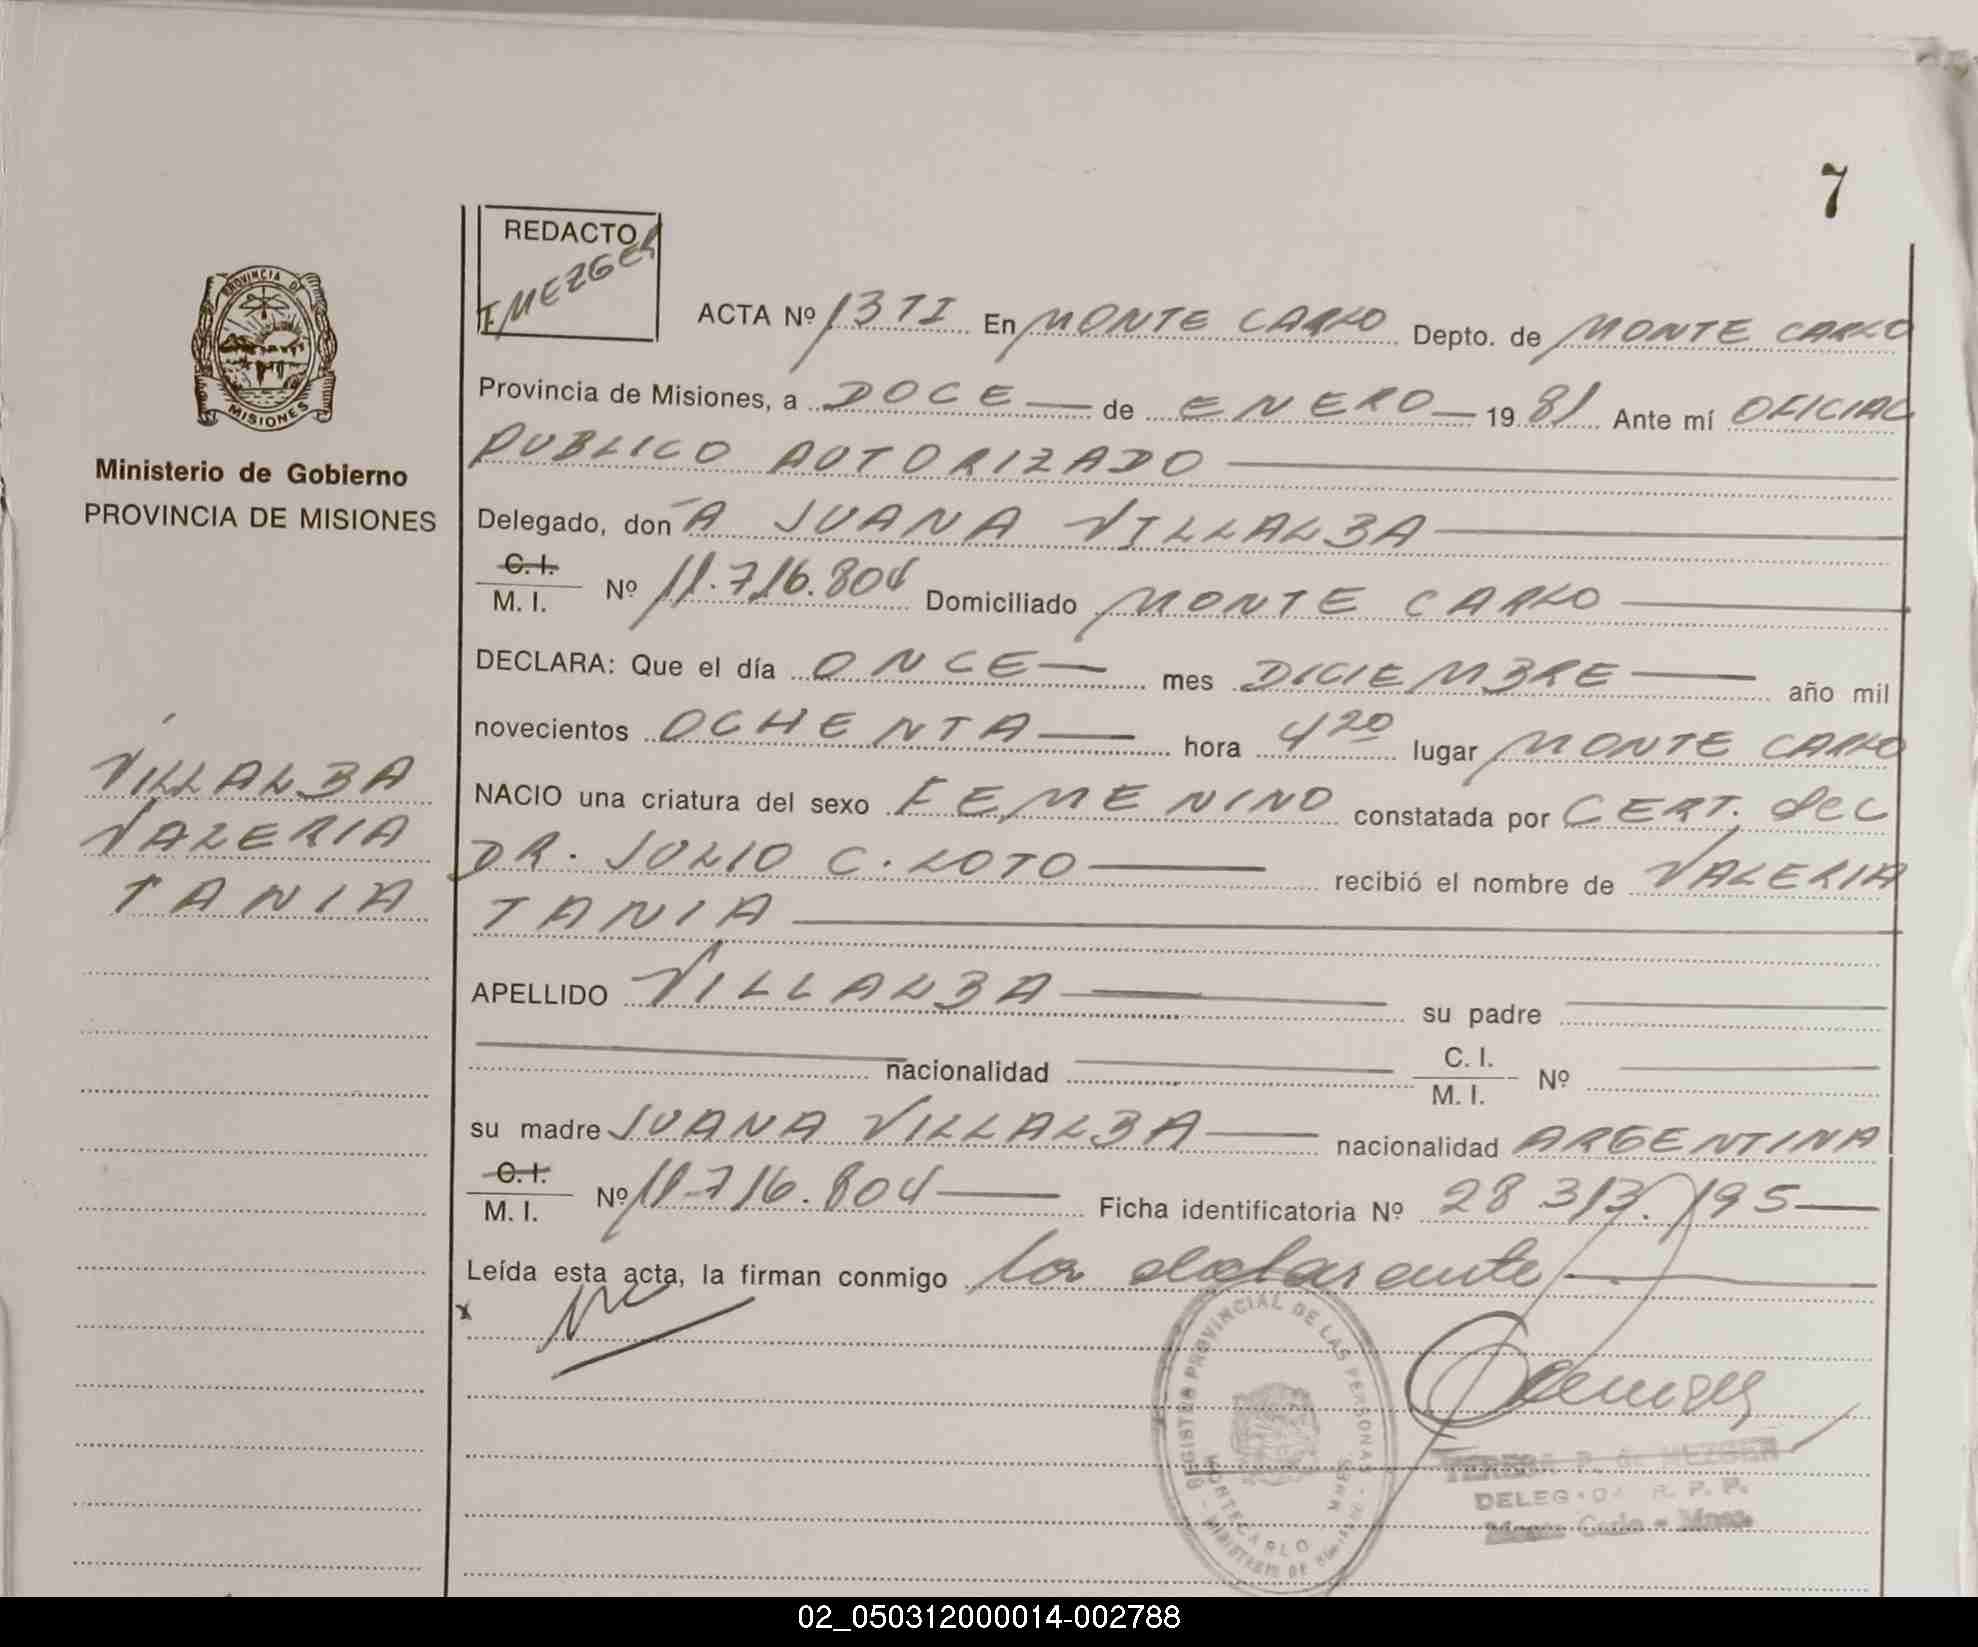 7
REDACTO
F MEZGER
PROVINCIA DE
MISIONES
Ministerio de Gobierno
PROVINCIA DE MISIONES
ACTA Nº 13 TI En MONTE CARLO Depto. de MONTE CARLO
Provincia de Misiones, a DOCE — de ENERO — 19 81 Ante mí OFICIAL
PUBLICO AUTORIZADO
Delegado, don A JUANA VILLALBA
C. I.
M. I. Nº 11.716.804 Domiciliado MONTE CARLO
DECLARA: Que el día ONCE — mes DICIEMBRE — año mil
novecientos OCHENTA — hora 4 20 lugar MONTE CARLO
NACIO una criatura del sexo FEMENINO constatada por CERT. del
DR. JULIO C. LOTO — recibió el nombre de VALERIA
TANIA
APELLIDO VILLALBA — su padre
nacionalidad C. I.
M. I. Nº
su madre JUANA VILLALBA — nacionalidad ARGENTINA
C. I.
M. I. Nº 11.716.804 — Ficha identificatoria Nº 28 313.195 —
Leída esta acta, la firman conmigo la declarante
VILLALBA
VALERIA
TANIA
REGISTRO PROVINCIAL DE LAS PERSONAS
MONTECARLO MNES.
TERESA P. de MEZGER
DELEGADA R. P. P.
Monte Carlo - Mnes.
02_050312000014-002788